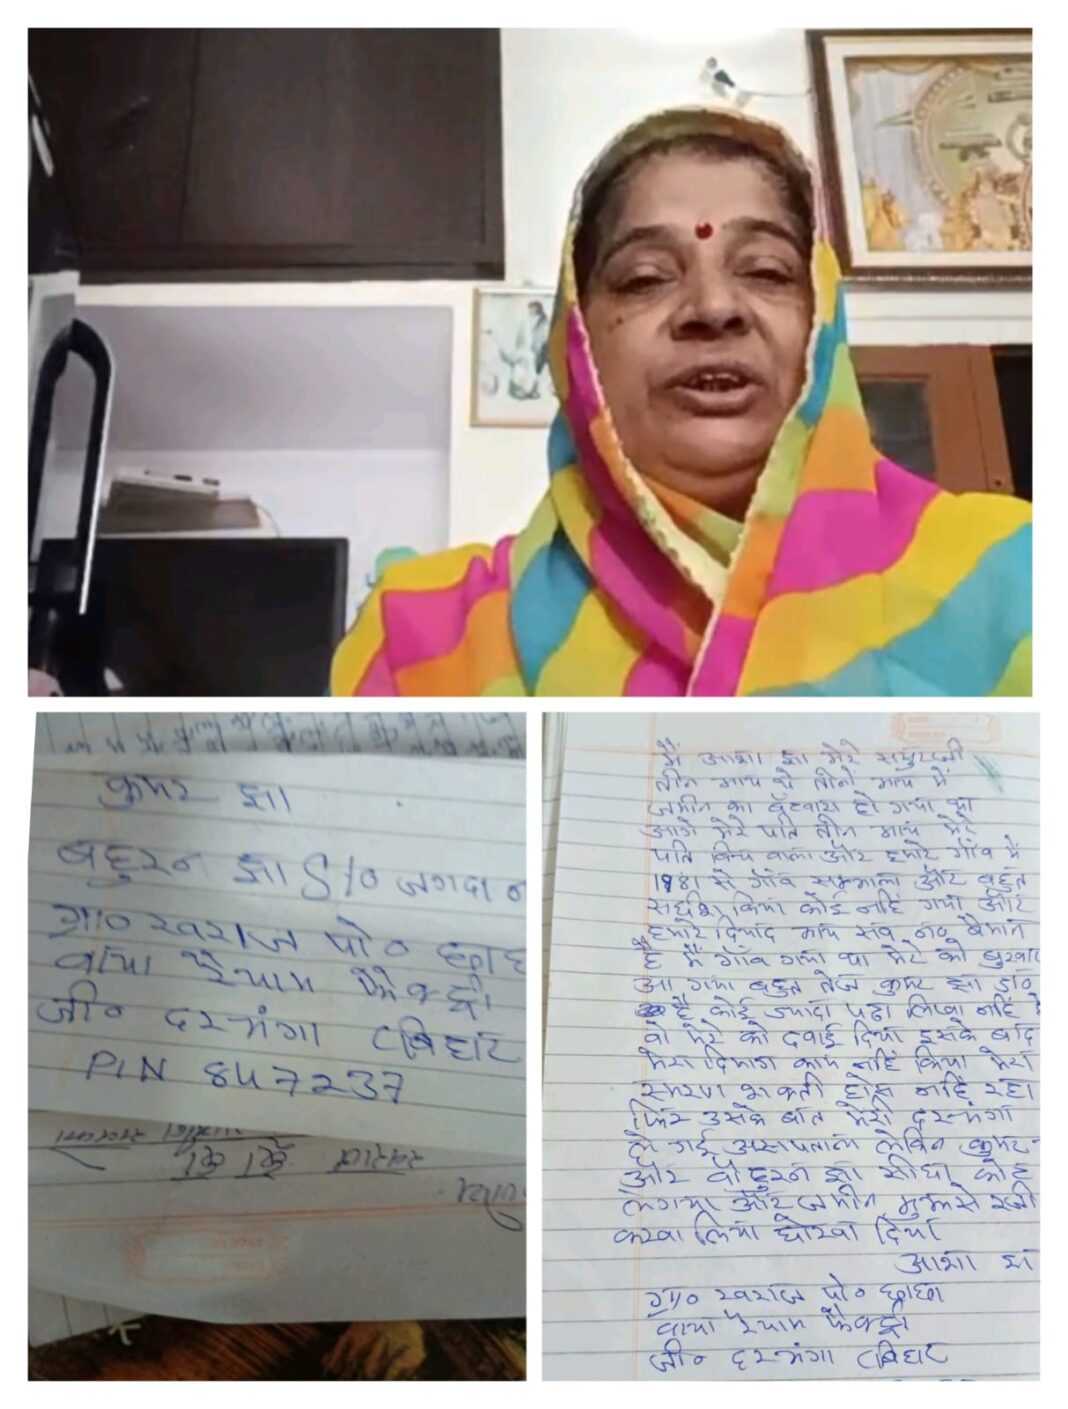 कुमर झा
बहुरन झा S/o जगदा न
ग्रा० खराज पो० छाछ
वाया रैयाम फैक्ट्री
जी० दरभंगा (बिहार
PIN 847237
मैं आशा झा मेरे ससुरजी
तीन भाय थे तीनों भाय में
जमीन का बँटवारा हो गया था
आगे मेरे पति तीन भाय मेरे
पति बिच वाला और हमारे गाँव में
1981 से गाँव सम्भाला और बहुत
संर्घश किया कोई नहिं गया और
हमारे दियाद भाय सब न० बैमान
है मैं गाँव गया था मेरे को बुखार
आ गया बहुत तेज कुमर झा डॉ०
है कोई ज्यादा पढा लिखा नहिं है
वो मेरे को दवाई दिया इसके बाद
मेरा दिमाग काम नहिं किया मेरा
स्मरण शक्ती होस नहिं रहा
फिर उसके बात मेरी दरभंगा
ले गई अस्पताल लेकिन कुमर
और बहुरन झा सीधा कोर्ट
लेगया और जमीन मुझसे रजी
करवा लिया धोखा दिया
आशा झा
ग्रा० खराज पो० छाछा
वाया रैयाम फैक्ट्री
जी० दरभंगा (बिहार